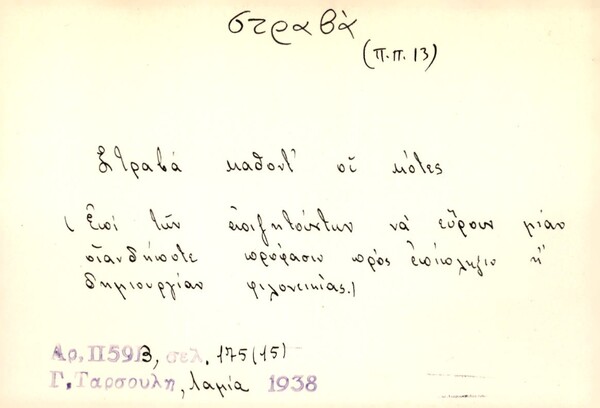 στραβὰ
(π.π. 13)
Στραβά καθοντ' οἱ κότες
(Ἐπί τῶν ἐπιζητούντων νὰ εὕρουν μίαν
οἱανδήποτε πρόφασιν πρός ἐπίπληξιν ἤ
δημιουργίαν φιλονεικίας.)
Αρ. Π591Β, σελ. 175 (15)
Γ. Ταρσουλη, Λαμία 1938